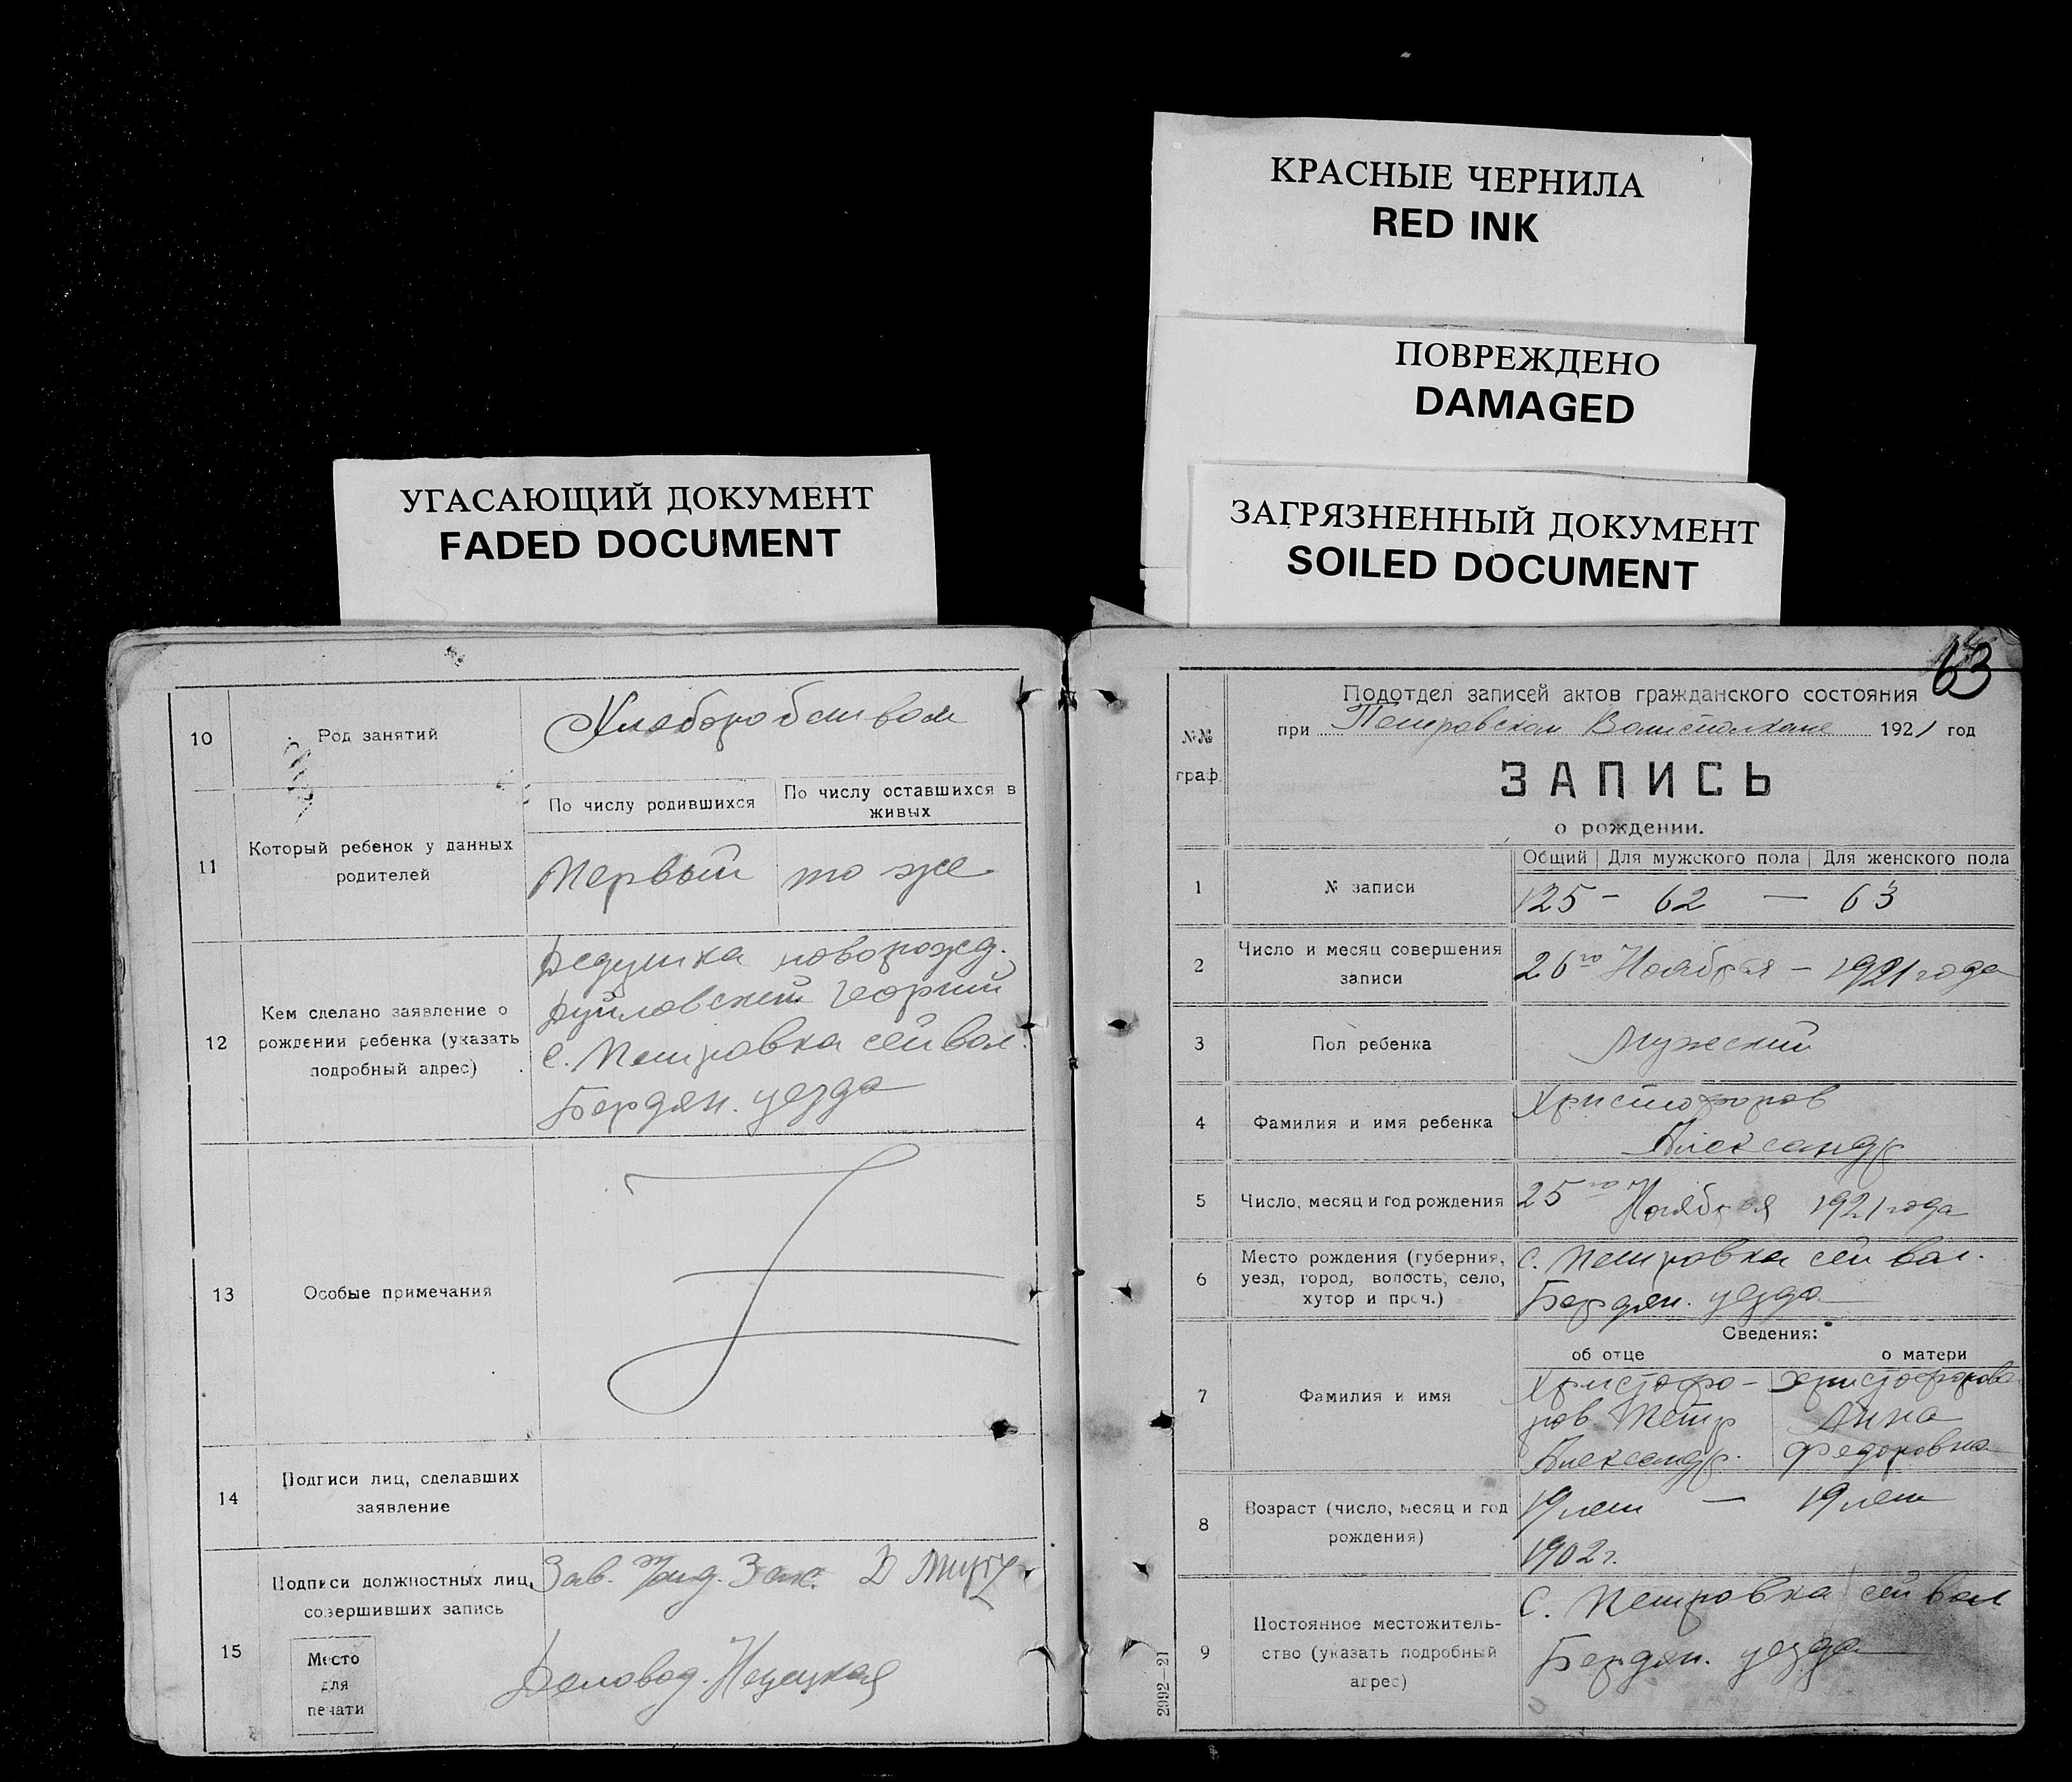 КРАСНЫЕ ЧЕРНИЛА
RED INK
ПОВРЕЖДЕНО
DAMAGED
УГАСАЮЩИЙ ДОКУМЕНТ
FADED DOCUMENT
ЗАГРЯЗНЕННЫЙ ДОКУМЕНТ
SOILED DOCUMENT
10 Род занятий Хлеборобством
11 Который ребенок у данных родителей
По числу родившихся По числу оставшихся в живых
Первый то же
12 Кем сделано заявление о рождении ребенка (указать подробный адрес)
Дедушка новорожд.
Георгий
с. Петровка сей вол.
Бердян. уезда
13 Особые примечания
14 Подписи лиц, сделавших заявление
15 Подписи должностных лиц, совершивших запись
Зав.
Деловод.
Место
для
печати
63
Подотдел записей актов гражданского состояния
при Петровском Волисполкоме 1921 год
№№ граф.
ЗАПИСЬ
о рождении.
Общий Для мужского пола Для женского пола
1 № записи 125 - 62 — 63
2 Число и месяц совершения записи 26го Ноября - 1921 года
3 Пол ребенка Мужский
4 Фамилия и имя ребенка Христофоров
Александр
5 Число, месяц и год рождения 25го Ноября 1921 года
6 Место рождения (губерния, уезд, город, волость, село, хутор и проч.)
с. Петровка сей вол.
Бердян. уезда
Сведения:
об отце о матери
7 Фамилия и имя
Христофо- Христофорова
ров Петр Анна
Александр. Федоровна
8 Возраст (число, месяц и год рождения)
19 лет — 19 лет
1902 г.
9 Постоянное местожительство (указать подробный адрес)
с. Петровка сей вол
Бердян. уезда
2992—21